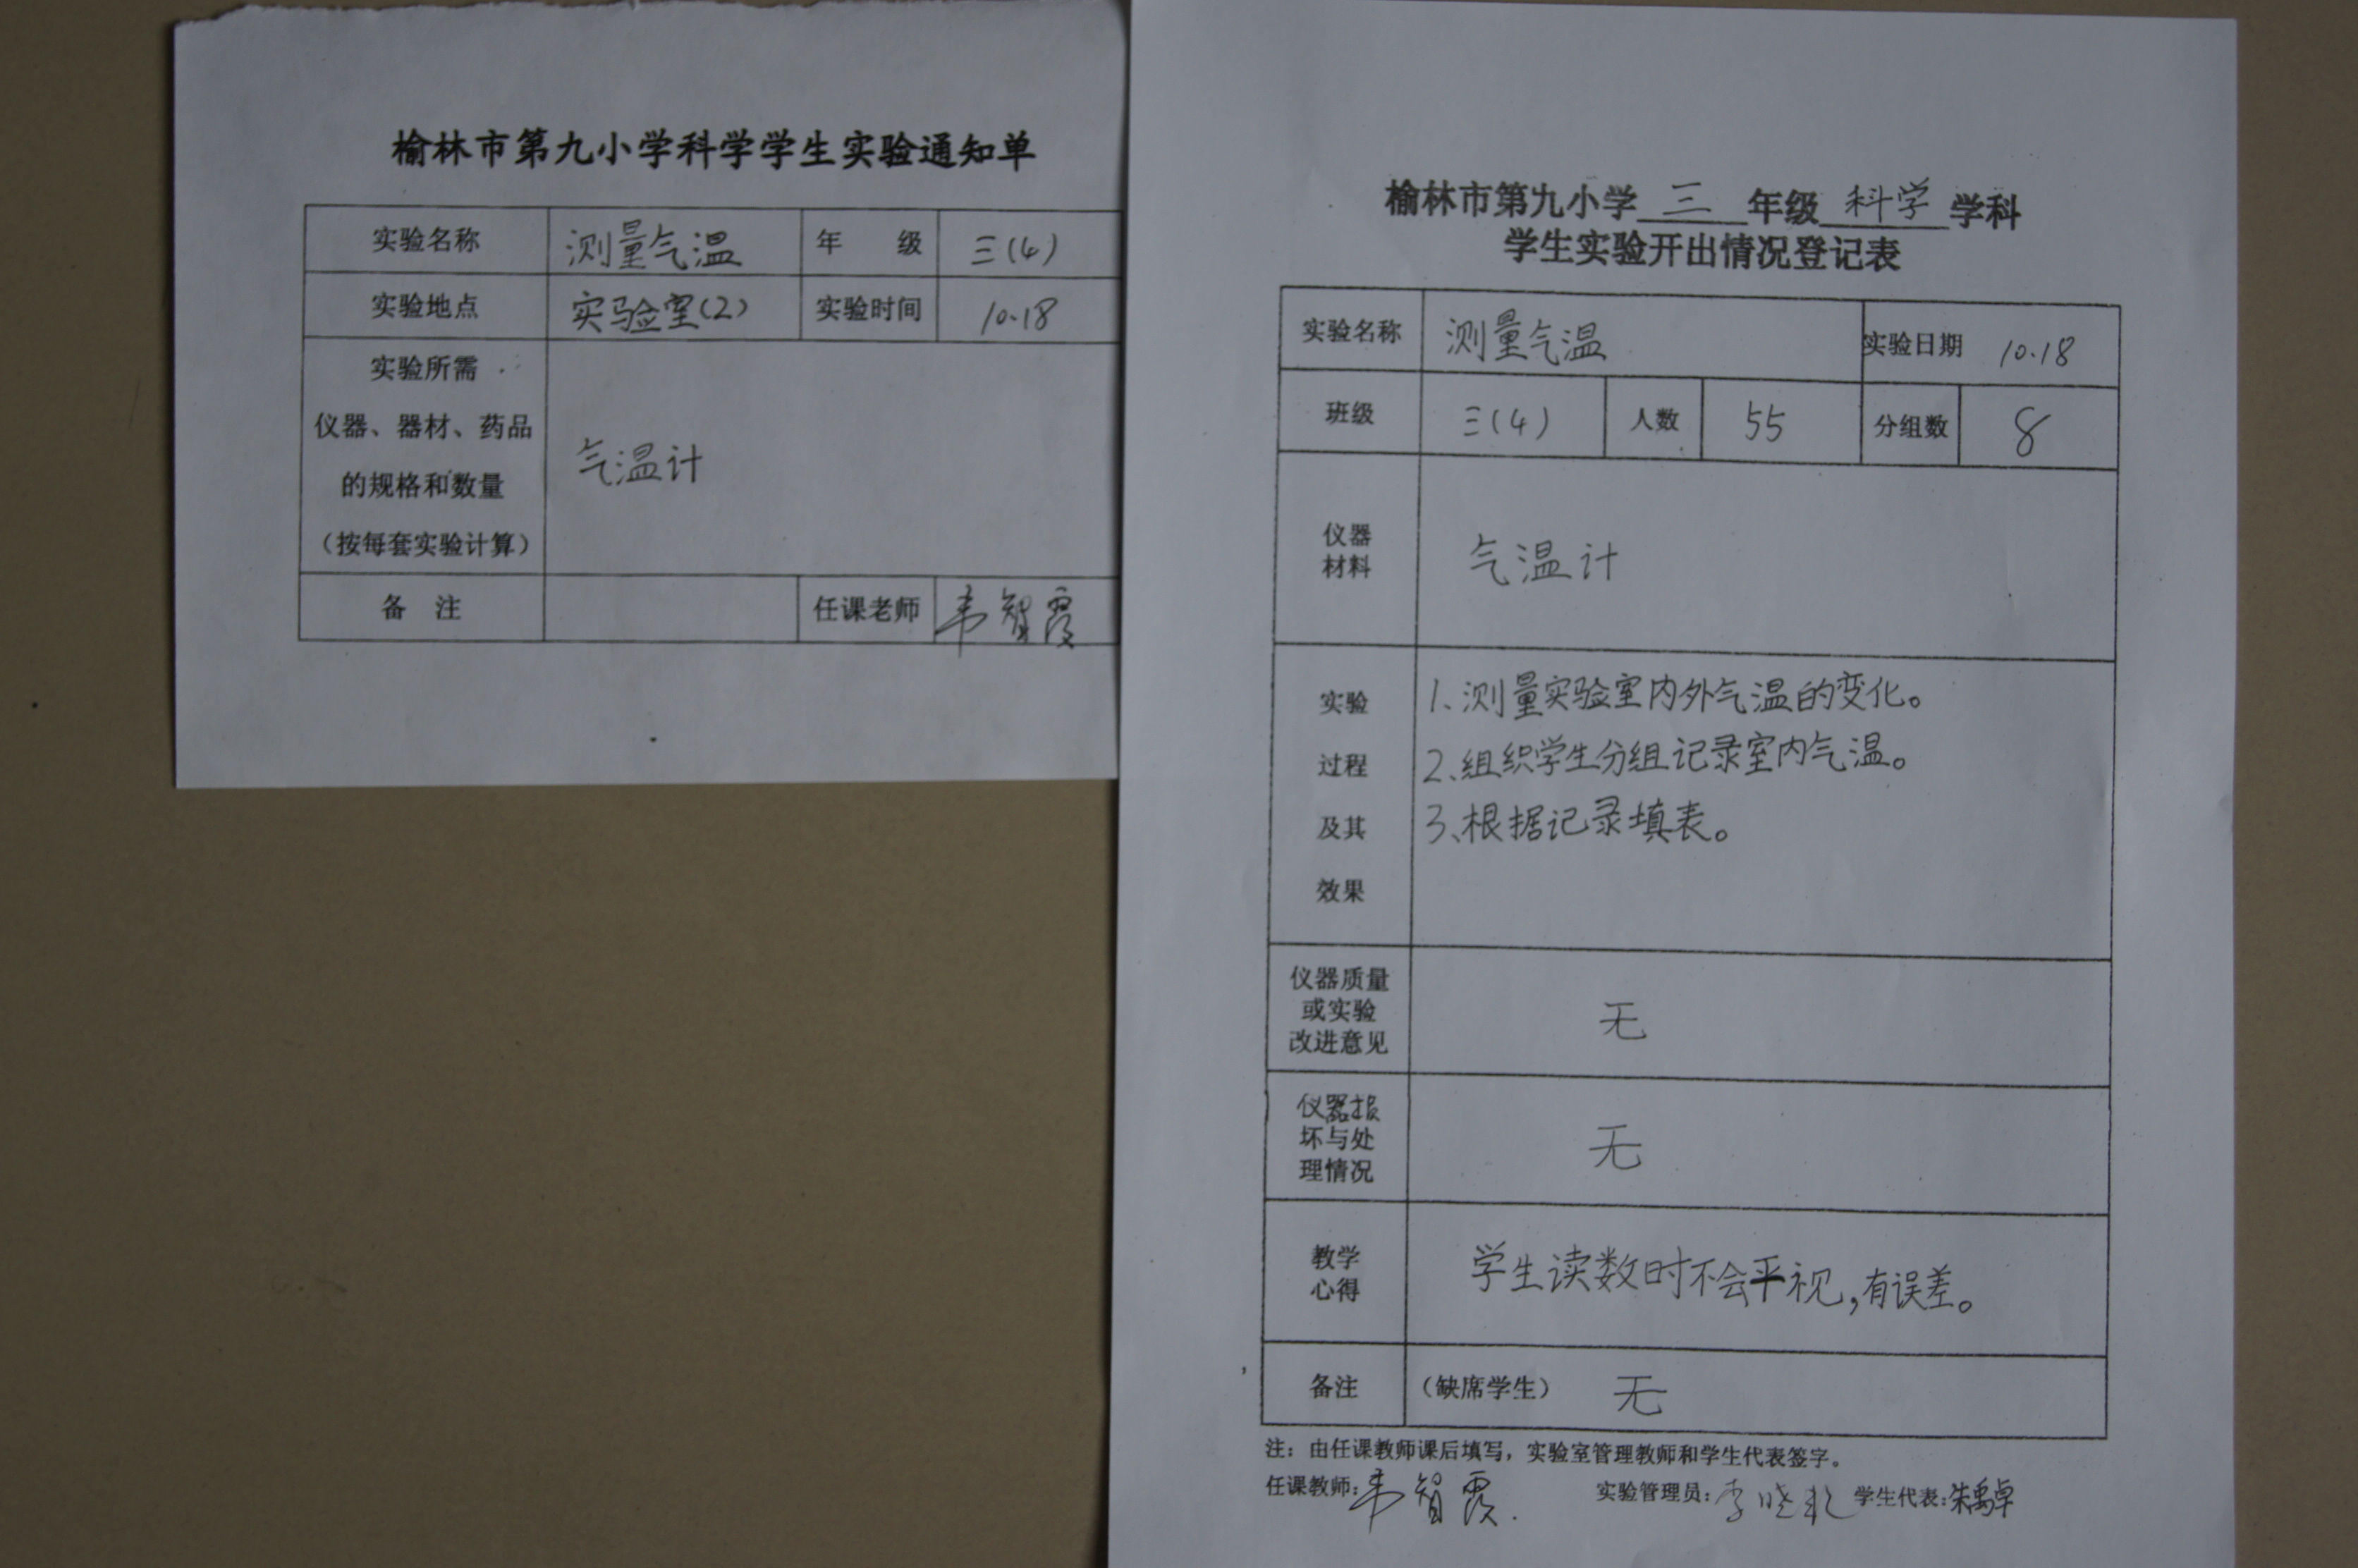 榆林市第九小学科学学生实验通知单
实验名称 测量气温 年 级 三(4)
实验地点 实验室(2) 实验时间 10.18
实验所需
仪器、器材、药品
的规格和数量
(按每套实验计算)
气温计
备 注 任课老师 韦智霞
榆林市第九小学 三 年级 科学 学科
学生实验开出情况登记表
实验名称 测量气温 实验日期 10.18
班级 三(4) 人数 55 分组数 8
仪器
材料
气温计
实验
过程
及其
效果
1、测量实验室内外气温的变化。
2、组织学生分组记录室内气温。
3、根据记录填表。
仪器质量
或实验
改进意见
无
仪器损
坏与处
理情况
无
教学
心得
学生读数时不会平视,有误差。
备注 (缺席学生) 无
注:由任课教师课后填写,实验室管理教师和学生代表签字。
任课教师:韦智霞. 实验管理员:李晓 学生代表:朱禹卓